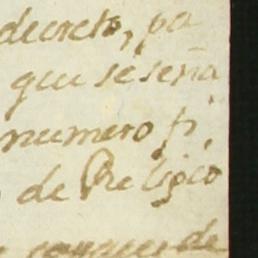 decreto, pa
que se seña
numero fi,
de Religio